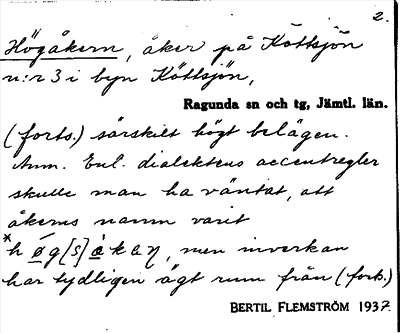 2.
Högåkern, åker på Köttsjön
n:r 3 i byn Köttsjön,
Ragunda sn och tg, Jämtl. län.
(forts.) särskilt högt belägen.
Anm. Enl. dialektens accentregler
skulle man ha väntat, att
åkerns namn varit
men inverkan
har tydligen ägt rum från (forts.)
BERTIL FLEMSTRÖM 1937.